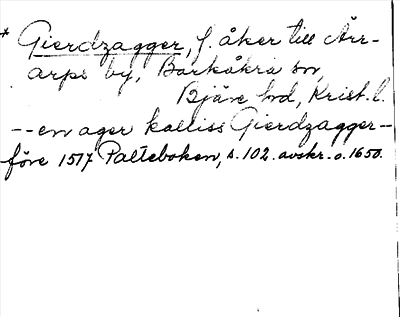 * Gierdzagger, f. åker till Ärr-
arps by, Barkåkra sn,
Bjäre hd, Krist. l.
-- en ager kalliss Gierdzagger --
före 1517 Palteboken, s. 102. avskr. o. 1650.